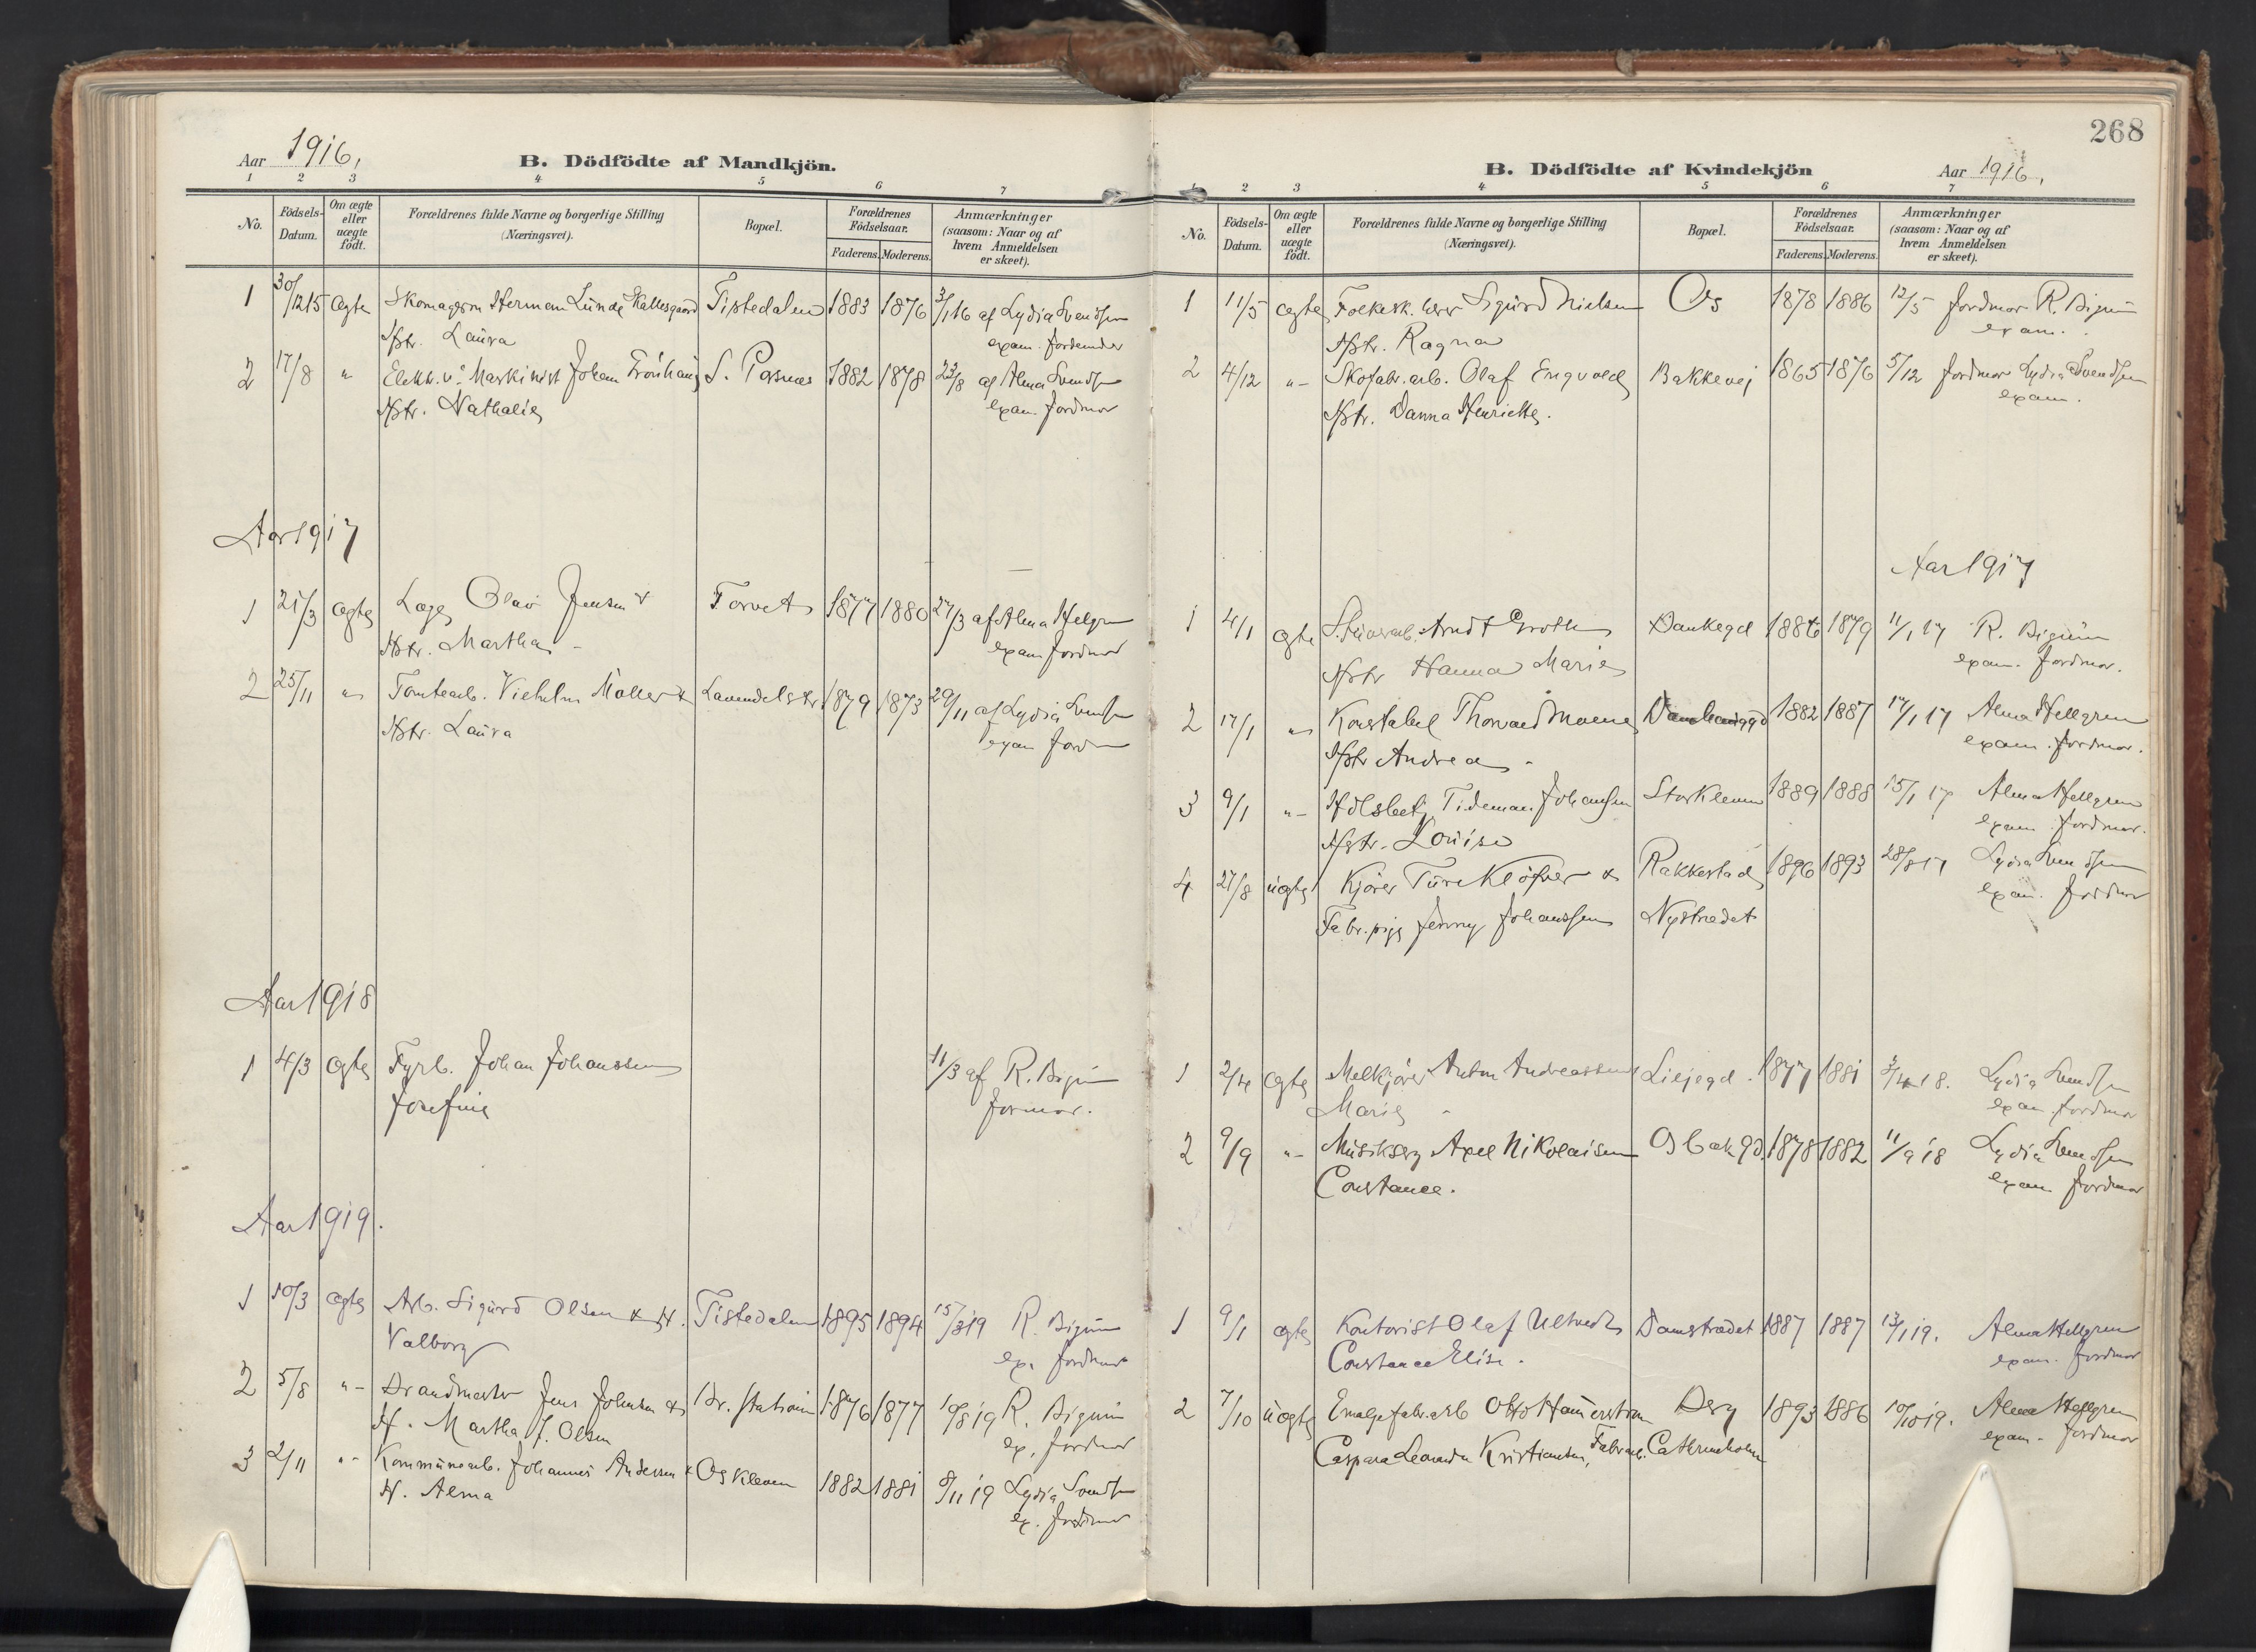 Aar 1916,
B. Dödfödte af Mandkjön.
1 2 3 4 5 6 7
No. Födsels-Datum. Om ægte eller uægte födt. Forældrenes fulde Navne og borgerlige Stilling (Næringsvei). Bopæl. Forældrenes Födselsaar. Faderens. Moderens. Anmærkninger (saasom: Naar og af hvem Anmeldelsen er skeet).
1 30/12 15 ægte Skomagersv. Herman Lunde Tistedalen 1883 1876 3/1 16 af Lydia Svendsen
Hstr. Laura exam. Jordemoder
2 17/8 " Elektr. v. Maskinist Johan S. Posnæs 1882 1878 23/8 af Alma
Hstr. Nathalie exam. Jordmor
Aar 1917
1 21/3 ægte Læge Olav Jensen & Torvet 1877 1880 27/3 af Alma
Hstr. Martha exam Jordmor
2 25/11 " Tomtearb. Vilhelm Møller & Lavendelstr 1879 1873 29/11 af Lydia Svendsen
Hstr. Laura exam Jordm
Aar 1918
1 4/3 ægte Fyrb. Johan Johanssen 11/3 af R. Bigum
Josefine Jormor.
Aar 1919.
1 10/3 ægte Arb. Sigurd Olsen & H. Tistedalen 1895 1894 15/3 19 R. Bigum
Valborg ex. Jordmor
2 5/8 "- Brandmester Jens Johnsen & Br. station 1876 1877 10/8 19 R. Bigum
H. Martha J. Olsen ex. Jordmor
3 2/11 "- Kommunearb. Johannes Andersen & Oskleven 1882 1881 8/11 19 Lydia Svendsen
H. Alma ex. Jordmor
268
B. Dödfödte af Kvindekjön
Aar 1916,
1 2 3 4 5 6 7
No. Födsels-Datum. Om ægte eller uægte födt. Forældrenes fulde Navne og borgerlige Stilling (Næringsvei). Bopæl. Forældrenes Födselsaar. Faderens. Moderens. Anmærkninger (saasom: Naar og af hvem Anmeldelsen er skeet).
1 11/5 ægte Folkesk. lærer Sigurd Nielsen Os 1878 1886 12/5 Jordmor R. Bigum
Hstr. Ragna exam.
2 4/12 "- Skofabr. arb. Olaf Engvold Bakkevej 1865 1876 5/12 Jordmor Lydia Svendsen
Hstr. Danna Henriette. exam.
Aar 1917
1 4/1 ægte Stuerarb. Arndt Groth Bankegd 1886 1879 11/1 17 R. Bigum
Hstr Hanna Marie exam. Jordmor.
2 17/1 " Konstabel Thorvald Moene 1882 1887 17/1 17 Alma Hellgren
Hstr Andrea exam. Jordmor.
3 9/1 "- Tideman Johansen Storkleven 1889 1888 15/1 17 Alma Hellgren
Hstr. Louise exam. Jordmor.
4 27/8 uægte Kjører Ture Kløfver & Rakkestad 1896 1893 28/8 17 Lydia Svendsen
Fabr. pige Jenny Johanssen Nystrædet exam. Jordmor
1 2/4 ægte Melkjører Anton Andreassen Liljegd. 1877 1881 3/4 18. Lydia Svendsen
Marie exam. Jordmor
2 9/9 "- Musikserg Axel Nikolaisen Osbakgd. 1878 1882 11/9 18 Lydia Svendsen
Constance. exam Jordmor
1 9/1 ægte Kontorist Olaf Ultvedt Damstrædet 1887 1887 13/1 19. Alma Hellgren
Constance Elise. exam. Jordmor
2 7/10 uægte Emaljefabr. arb Otto Hamerstrøm Berg 1893 1886 10/10 19. Alma Hellgren
Caspara Leonarda Kristiansen, Fabr. arb. Cathrineholm exam. Jordmor